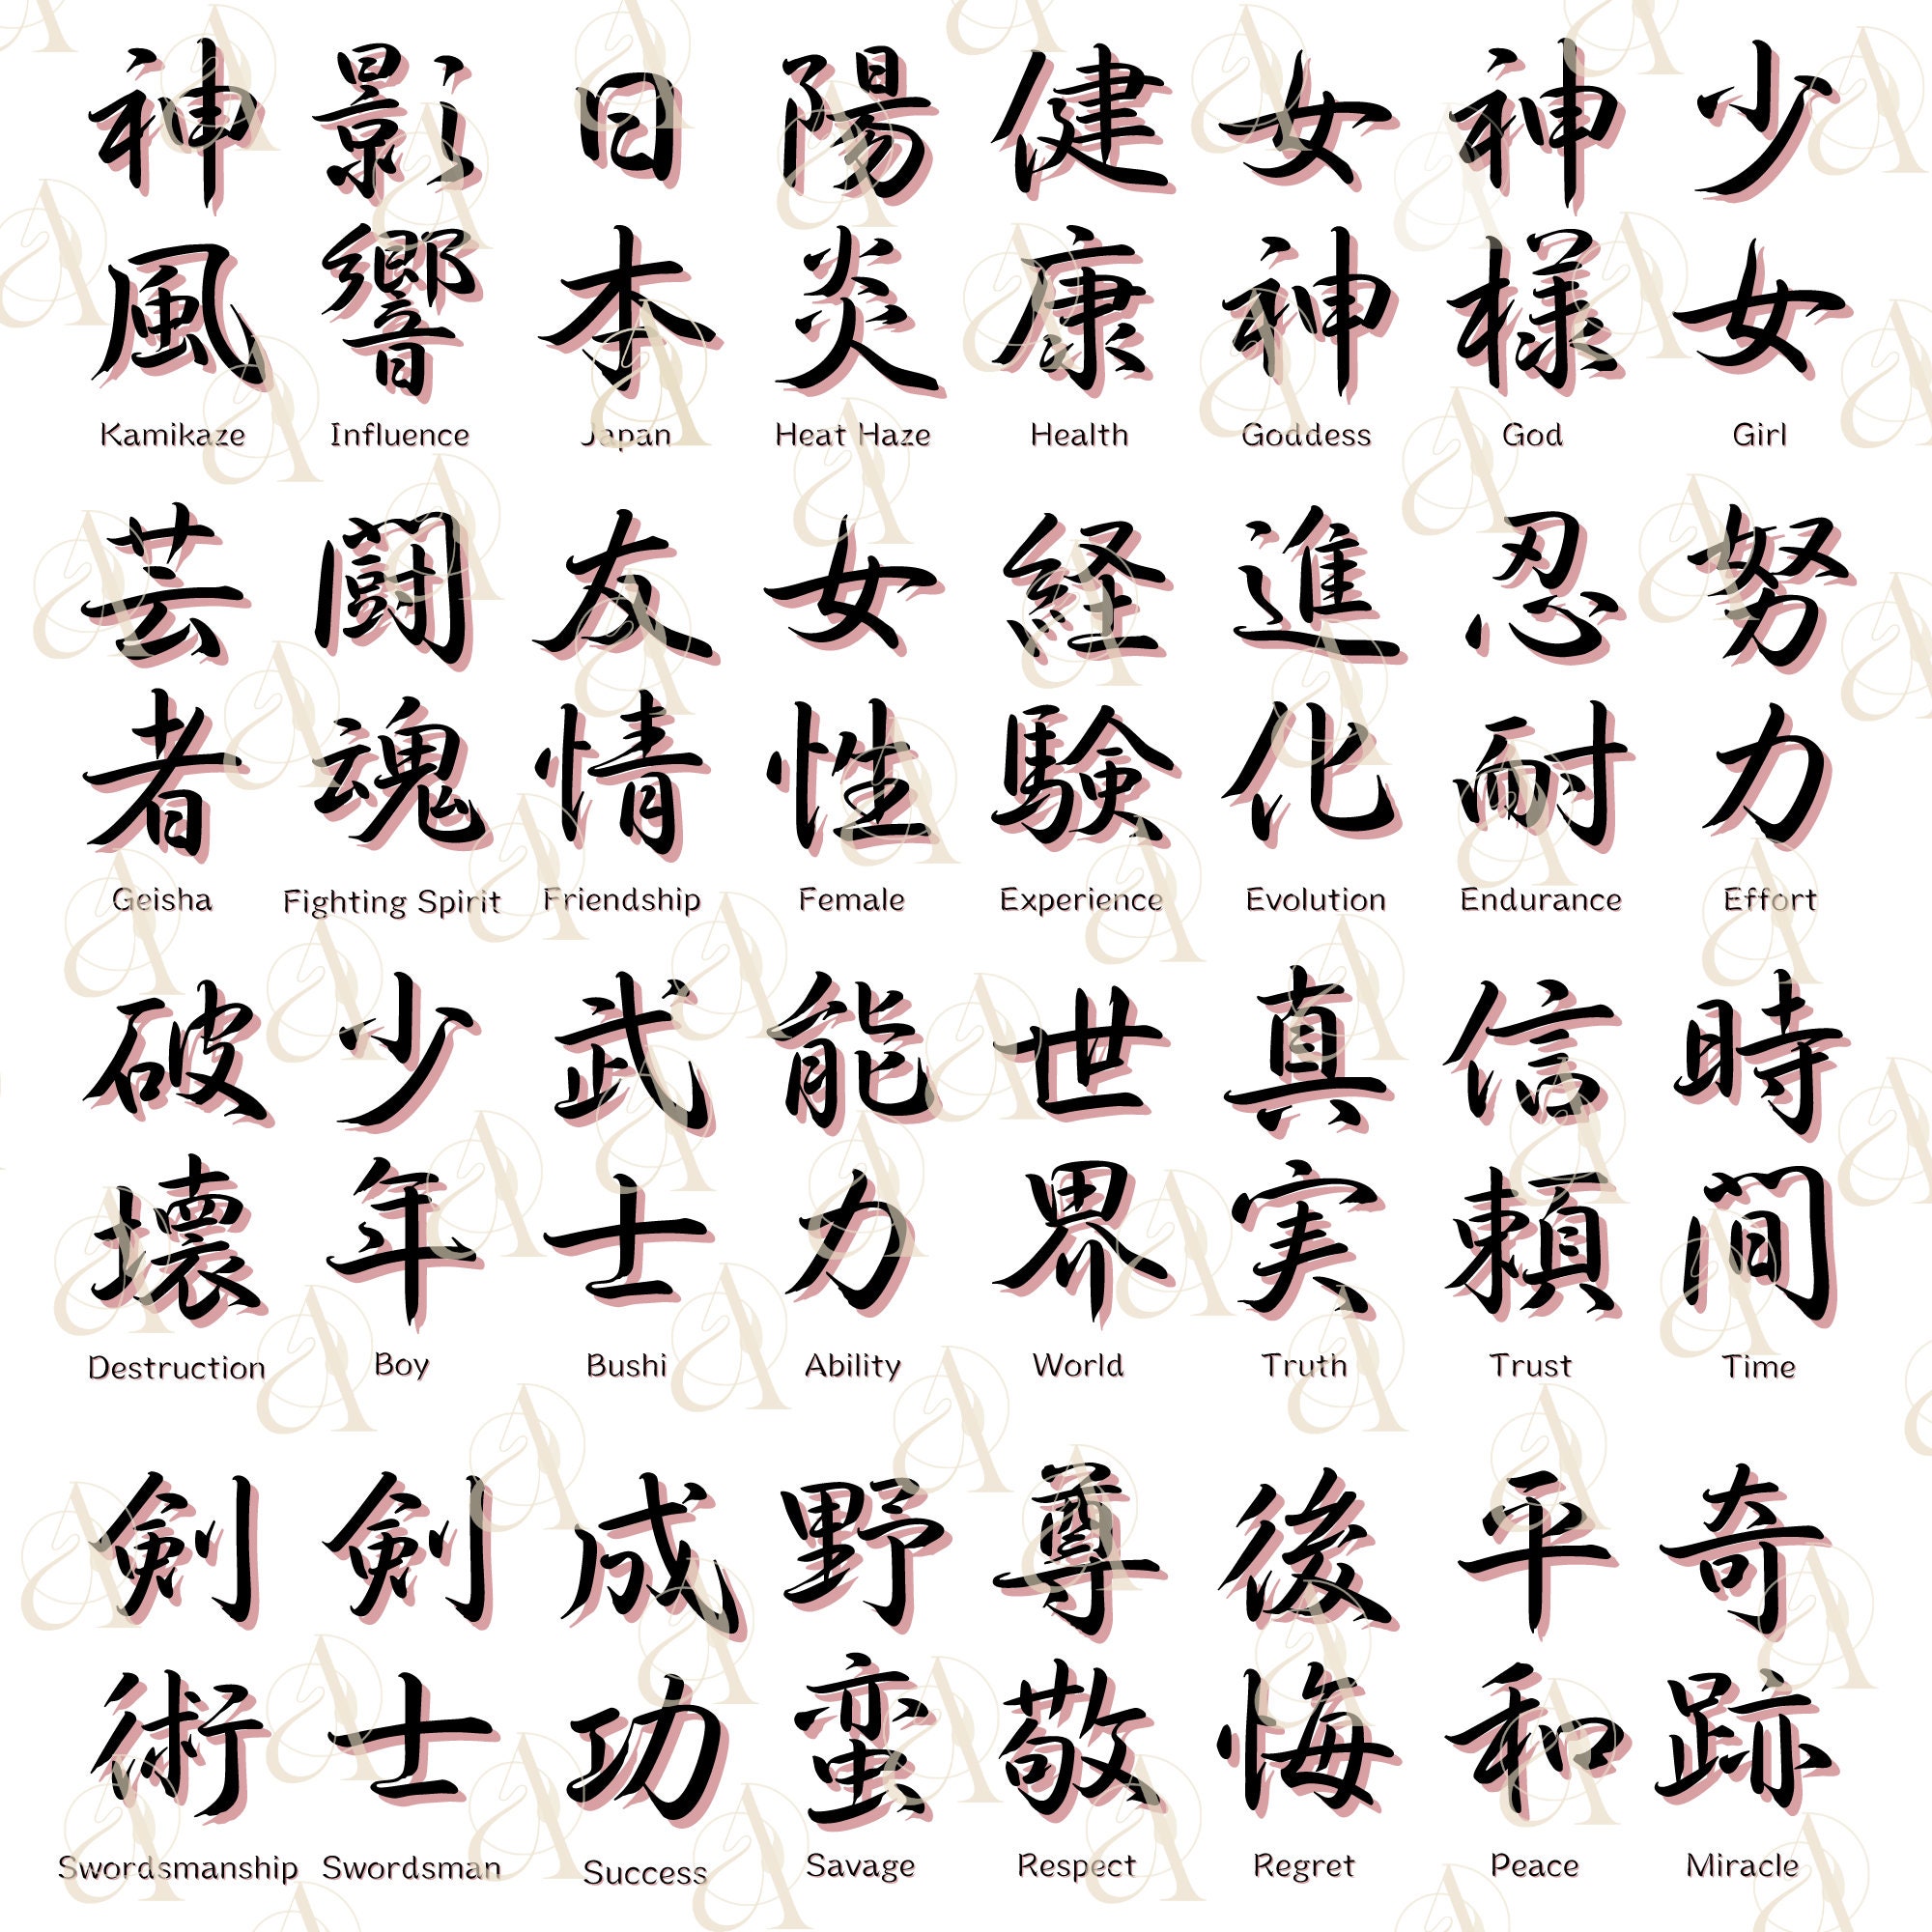 神風
Kamikaze
影響
Influence
日本
Japan
陽炎
Heat Haze
健康
Health
女神
Goddess
神様
God
少女
Girl
芸者
Geisha
闘魂
Fighting Spirit
友情
Friendship
女性
Female
経験
Experience
進化
Evolution
忍耐
Endurance
努力
Effort
破壊
Destruction
少年
Boy
武士
Bushi
能力
Ability
世界
World
真実
Truth
信頼
Trust
時間
Time
剣術
Swordsmanship
剣士
Swordsman
成功
Success
野蛮
Savage
尊敬
Respect
後悔
Regret
平和
Peace
奇跡
Miracle